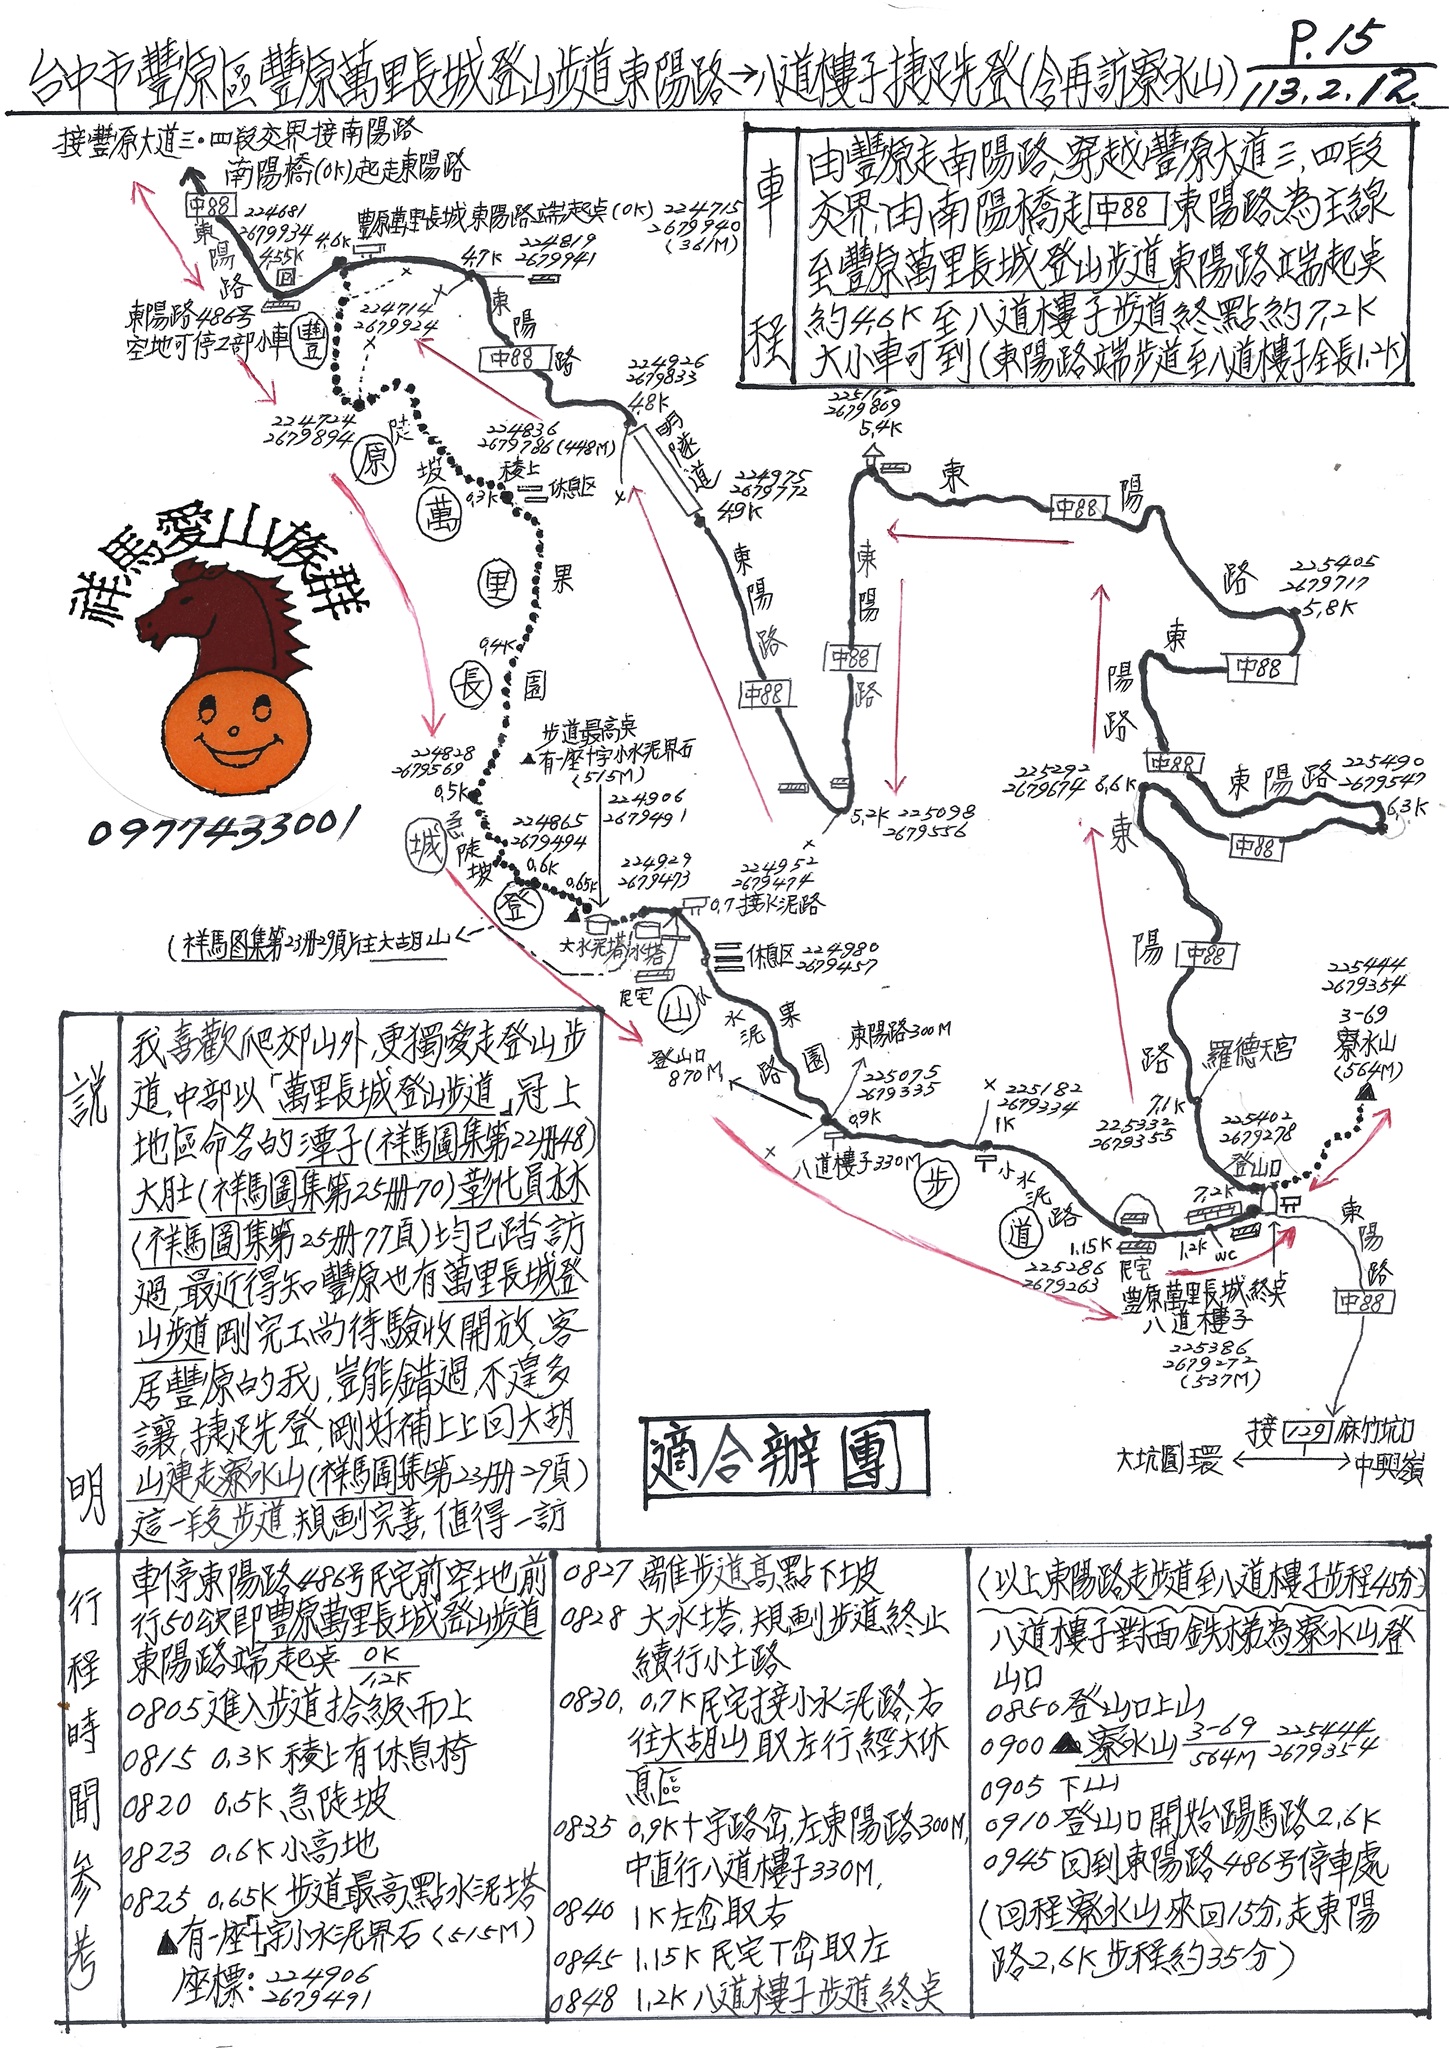 P.15
台中市豐原區豐原萬里長城登山步道東陽路→八道樓子捷足先登(含再訪寮水山)
113.2.12.
接豐原大道三·四段交界接南陽路
南陽橋(0K)起走東陽路
中88
東陽路
224681
2679934
4.55K
4.6K
豊原萬里長城東陽路端起點(0K)
224715
2679940
(361M)
4.7K
224819
2679941
東陽路486号
空地可停2部小車
224714
2679924
東陽路
中88
224926
2679833
4.8K
明隧道
224975
2679772
4.9K
224724
2679894
陡坡
224836
2679786(448M)
稜上
0.3K
休息区
豐原萬里長城登山步道
果園
0.4K
224828
2679569
0.5K
急陡坡
224865
2679494
0.6K
0.65K
步道最高點
▲有一座十字小水泥界石
(515M)
224906
2679491
224929
2679473
224952
2679474
0.7接水泥路
大水泥塔
水塔
民宅
(祥馬图集第23册29頁)往大胡山
休息区
224980
2679457
小水泥路
果園
登山口
870M
東陽路300M
225075
2679335
0.9K
八道樓子330M
225182
2679334
1K
小水泥路
1.15K
225286
2679263
民宅
1.2K
WC
豊原萬里長城終點
八道樓子
225386
2679272
(537M)
東陽路
中88
東陽路
中88
5.2K
225098
2679556
225112
2679869
5.4K
東陽路
中88
225405
2679717
5.8K
東陽路
中88
中88
東陽路
225490
2679547
6.3K
中88
225292
2679674
6.6K
東陽路
中88
羅德天宮
7.1K
225332
2679355
225402
2679278
登山口
7.2K
225444
2679354
3-69
寮水山
(564M)
東陽路
中88
接129麻竹坑口
大坑圓環
中興嶺
祥馬愛山族群
0977433001
適合辦團
車程
由豐原走南陽路,穿越豐原大道三,四段
交界,由南陽橋走中88東陽路為主線
至豐原萬里長城登山步道東陽路端起點
約4.6K至八道樓子步道終點約7.2K
大小車可到(東陽路端步道至八道樓子全長1.2K)
說明
我喜歡爬郊山外,更獨愛走登山步
道,中部以「萬里長城登山步道」冠上
地區命名的潭子(祥馬圖集第22册48)
大肚(祥馬圖集第25册70)彰化員林
(祥馬圖集第25册77頁)均已踏訪
過,最近得知豐原也有萬里長城登
山步道剛完工尚待驗收開放,客
居豐原的我,豈能錯過,不遑多
讓,捷足先登,剛好補上上回大胡
山連走寮水山(祥馬圖集第23册29頁)
這一段步道,規劃完善,值得一訪
行程時間參考
車停東陽路486号民宅前空地前
行50公尺即豊原萬里長城登山步道
東陽路端起點 0K/1.2K
0805進入步道拾級而上
0815 0.3K 稜上有休息椅
0820 0.5K 急陡坡
0823 0.6K 小高地
0825 0.65K 步道最高點水泥塔
▲有一座「十」字小水泥界石(515M)
座標:224906
2679491
0827 離佳步道高點下坡
0828 大水塔,規劃步道終止
續行小土路
0830, 0.7K民宅接小水泥路,右
往大胡山取左行經大休
息區
0835 0.9K十字路岔,左東陽路300M,
中直行八道樓子330M,
0840 1K左岔取右
0845 1.15K民宅丁岔取左
0848 1.2K八道樓子步道終點
(以上東陽路走步道至八道樓子步程45分)
八道樓子對面鉄梯為寮水山登
山口
0850登山口上山
0900 ▲寮水山 3-69/564M 225444
2679354
0905 下山
0910登山口開始踢馬路2.6K
0945回到東陽路486号停車處
(回程寮水山來回15分,走東陽
路2.6K步程約35分)